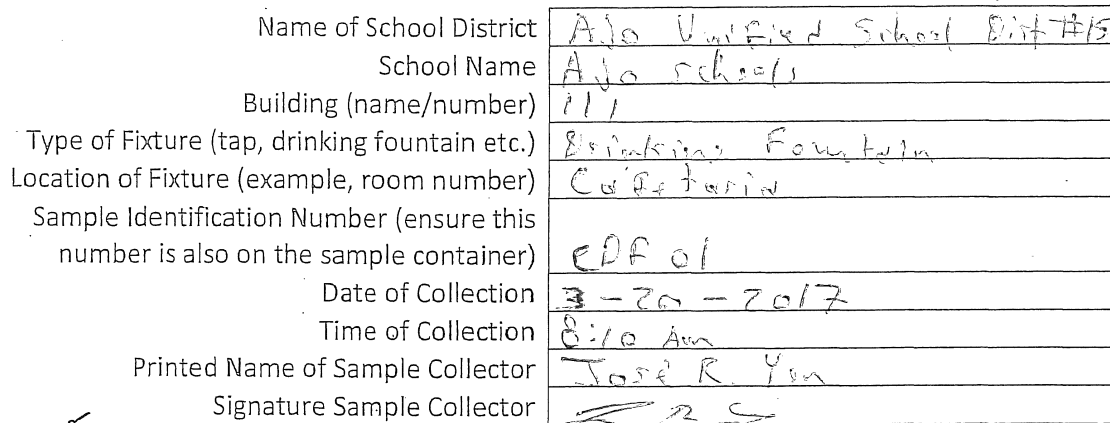 Name of School District Ajo Unified School Dist #15
School Name Ajo schools
Building (name/number) 111
Type of Fixture (tap, drinking fountain etc.) Drinking Fountain
Location of Fixture (example, room number) Cafetaria
Sample Identification Number (ensure this
number is also on the sample container) CDF 01
Date of Collection 3-20-2017
Time of Collection 8:10 Am
Printed Name of Sample Collector José R. Yen
Signature Sample Collector